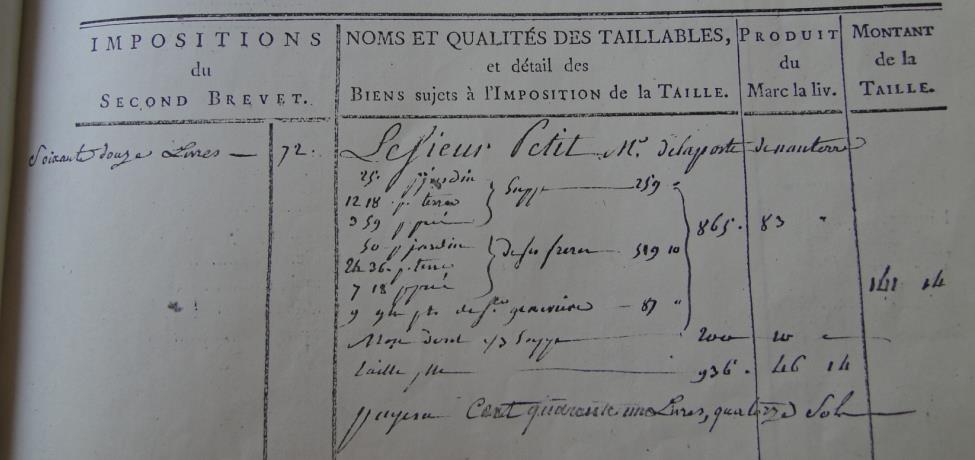 IMPOSITIONS
du
SECOND BREVET.
NOMS ET QUALITÉS DES TAILLABLES,
et détail des
BIENS sujets à l'IMPOSITION de la TAILLE.
PRODUIT
du
Marc la liv.
MONTANT
de la
TAILLE.
Soixante douze Livres — 72.
Le Sieur Petit Mr. delaporte denanterre
25. p jardin
12 18. p. terre
3 59 p pré
Suppe — 259 "
50 p jardin
24 36. p. terre
7 18 p pré
de ses freres — 519 10
865. 83 "
9 de Ste. genevieve — 87 "
Mon dont 1/3 Suppe — 200 20
taille — 936. 46 14
141 14
payera Cent quarante une Livres, quatorze Sols